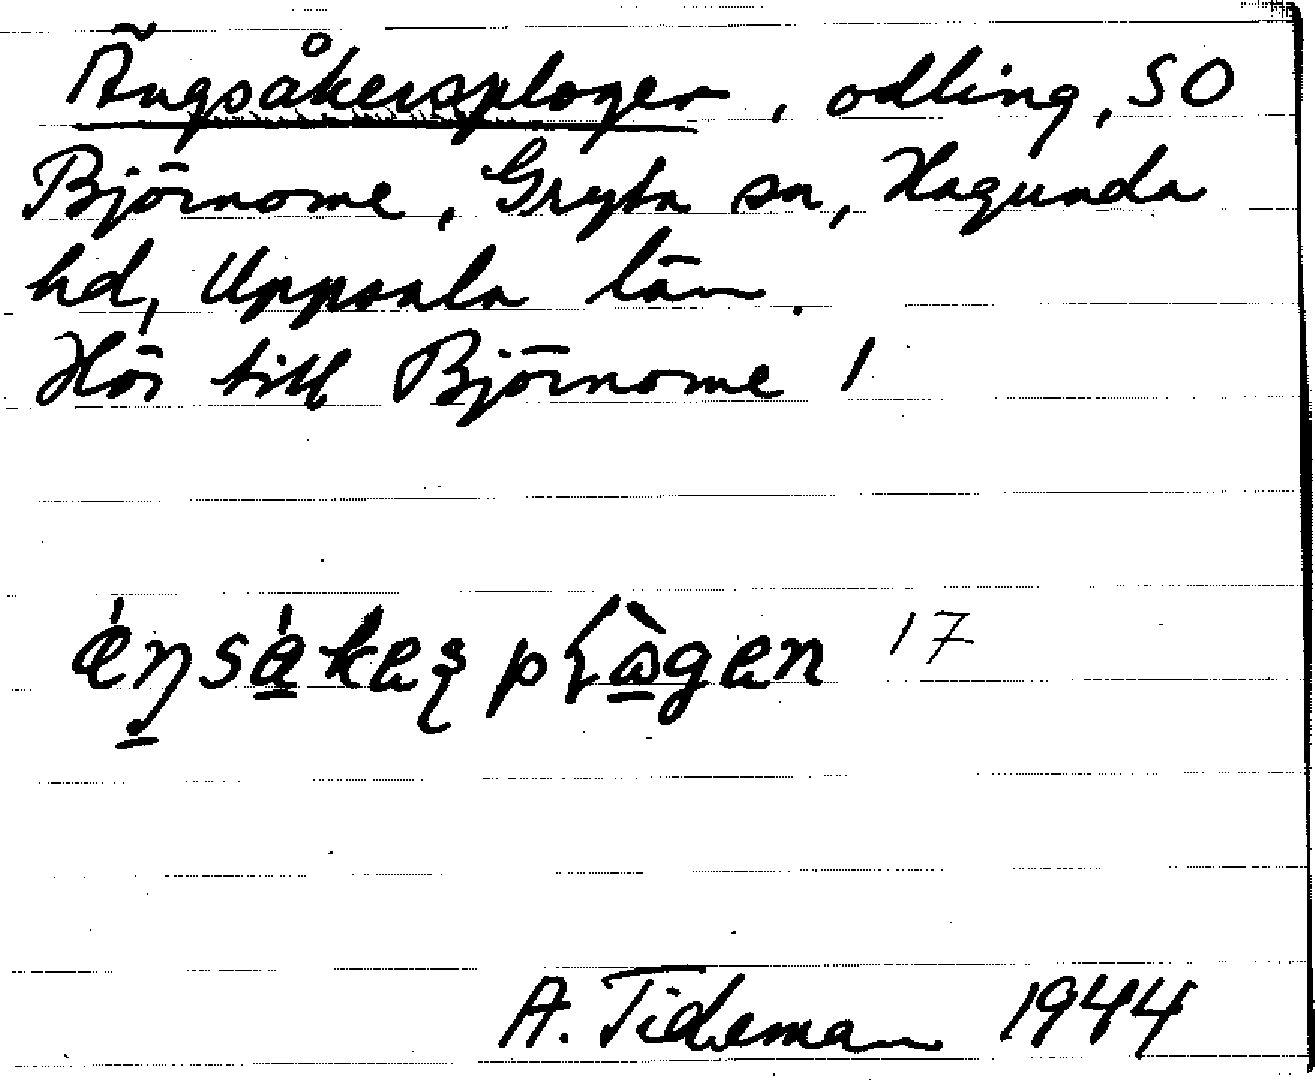 Ängsåkersplogen, odling, SO
Björnome, Gryta sn, Hagunda
hd, Uppsala län.
Hör till Björnome 1
ä́ŋsa̲̍kəʂ plò̲gən 17
A. Tideman 1944